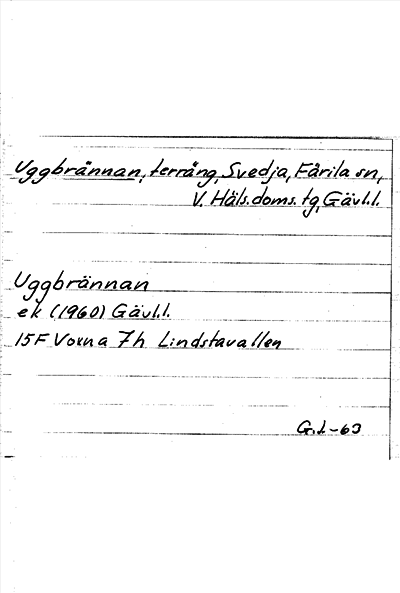 Uggbrännan, terräng, Svedja, Färila sn,
V. Häls.doms. tg, Gävl.l.
Uggbrännan
ek (1960) Gävl.l.
15F Voxna 7h Lindstavallen
G.L-63